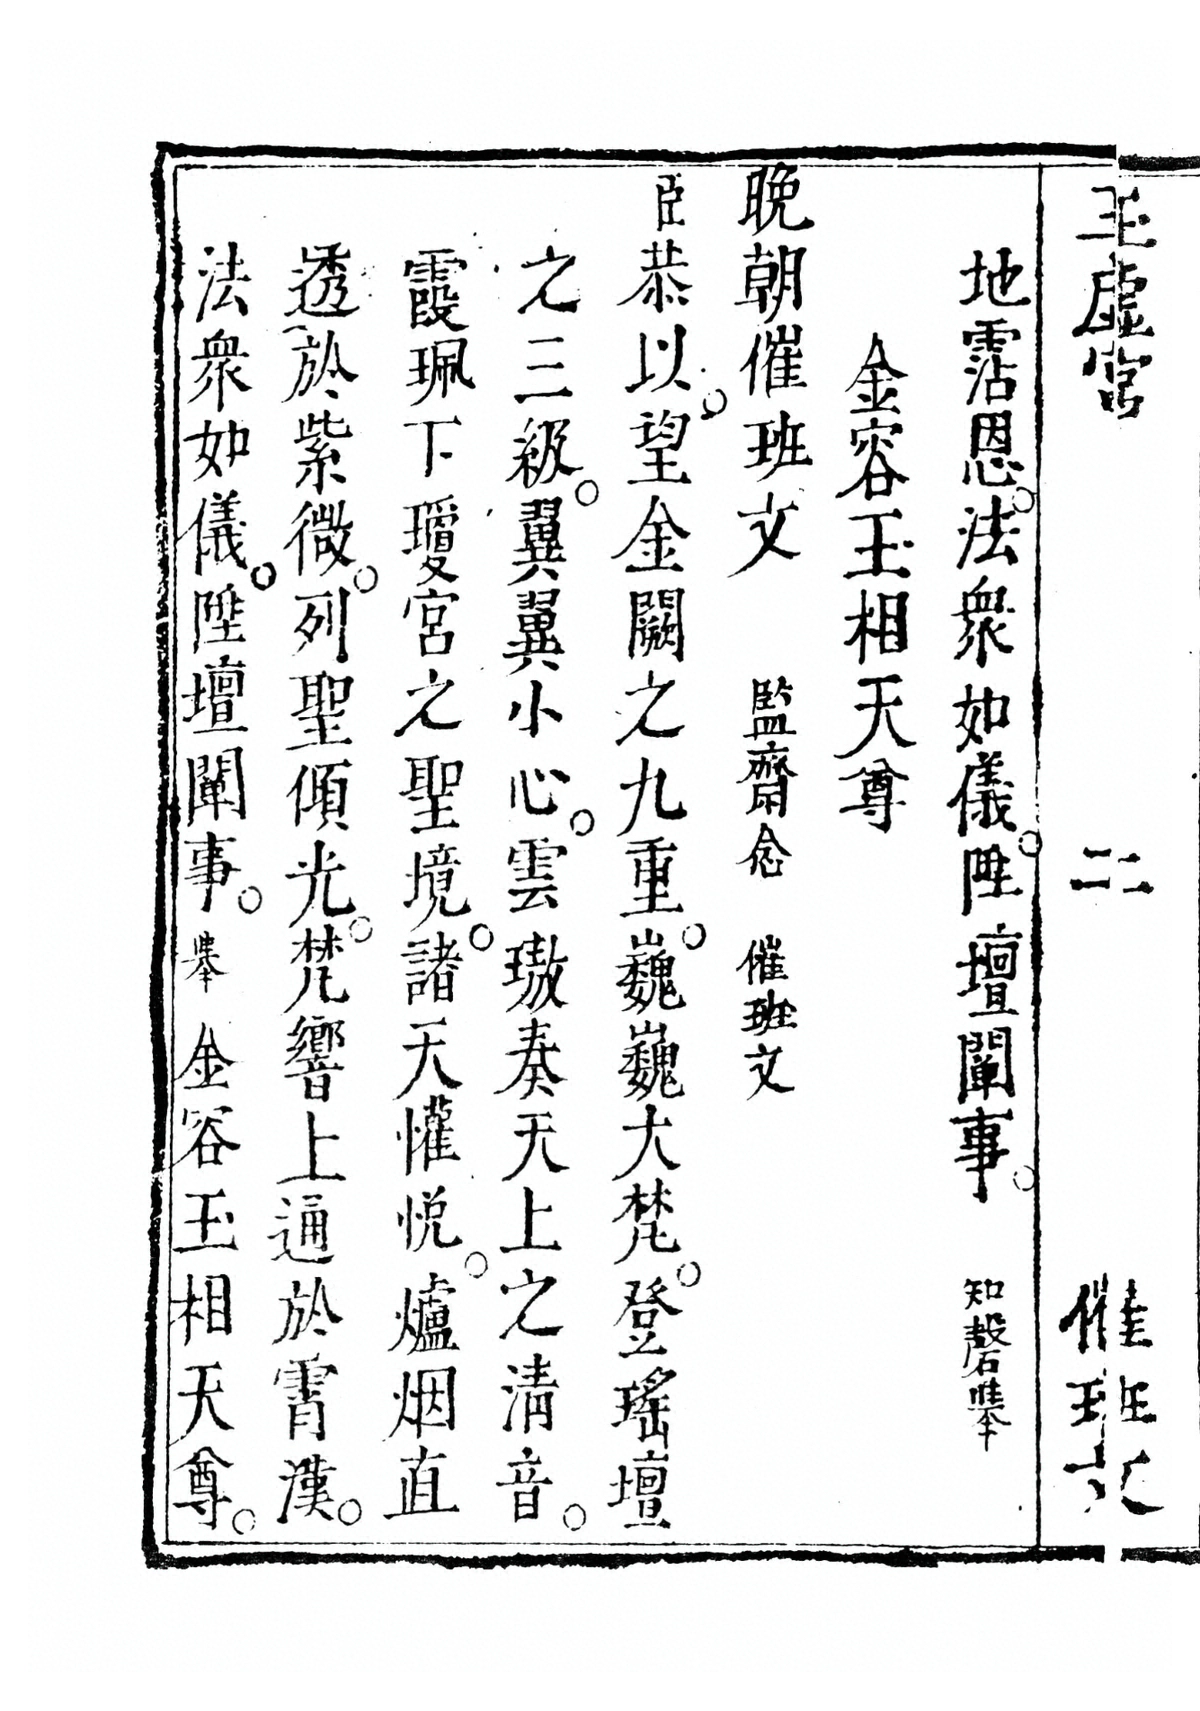 玉虛宮 二 催班文
地霑恩。法衆如儀。陞壇闡事。 知磬舉
金容玉相天尊
晚朝催班文 監齋念 催班文
臣恭以。望金闕之九重。巍巍大梵。登瑤壇
之三級。翼翼小心。雲璈奏天上之清音。
霞珮下瓊宮之聖境。諸天懽悅。爐烟直
透於紫微。列聖傾光。梵響上通於霄漢。
法衆如儀。陞壇闡事。舉 金容玉相天尊。